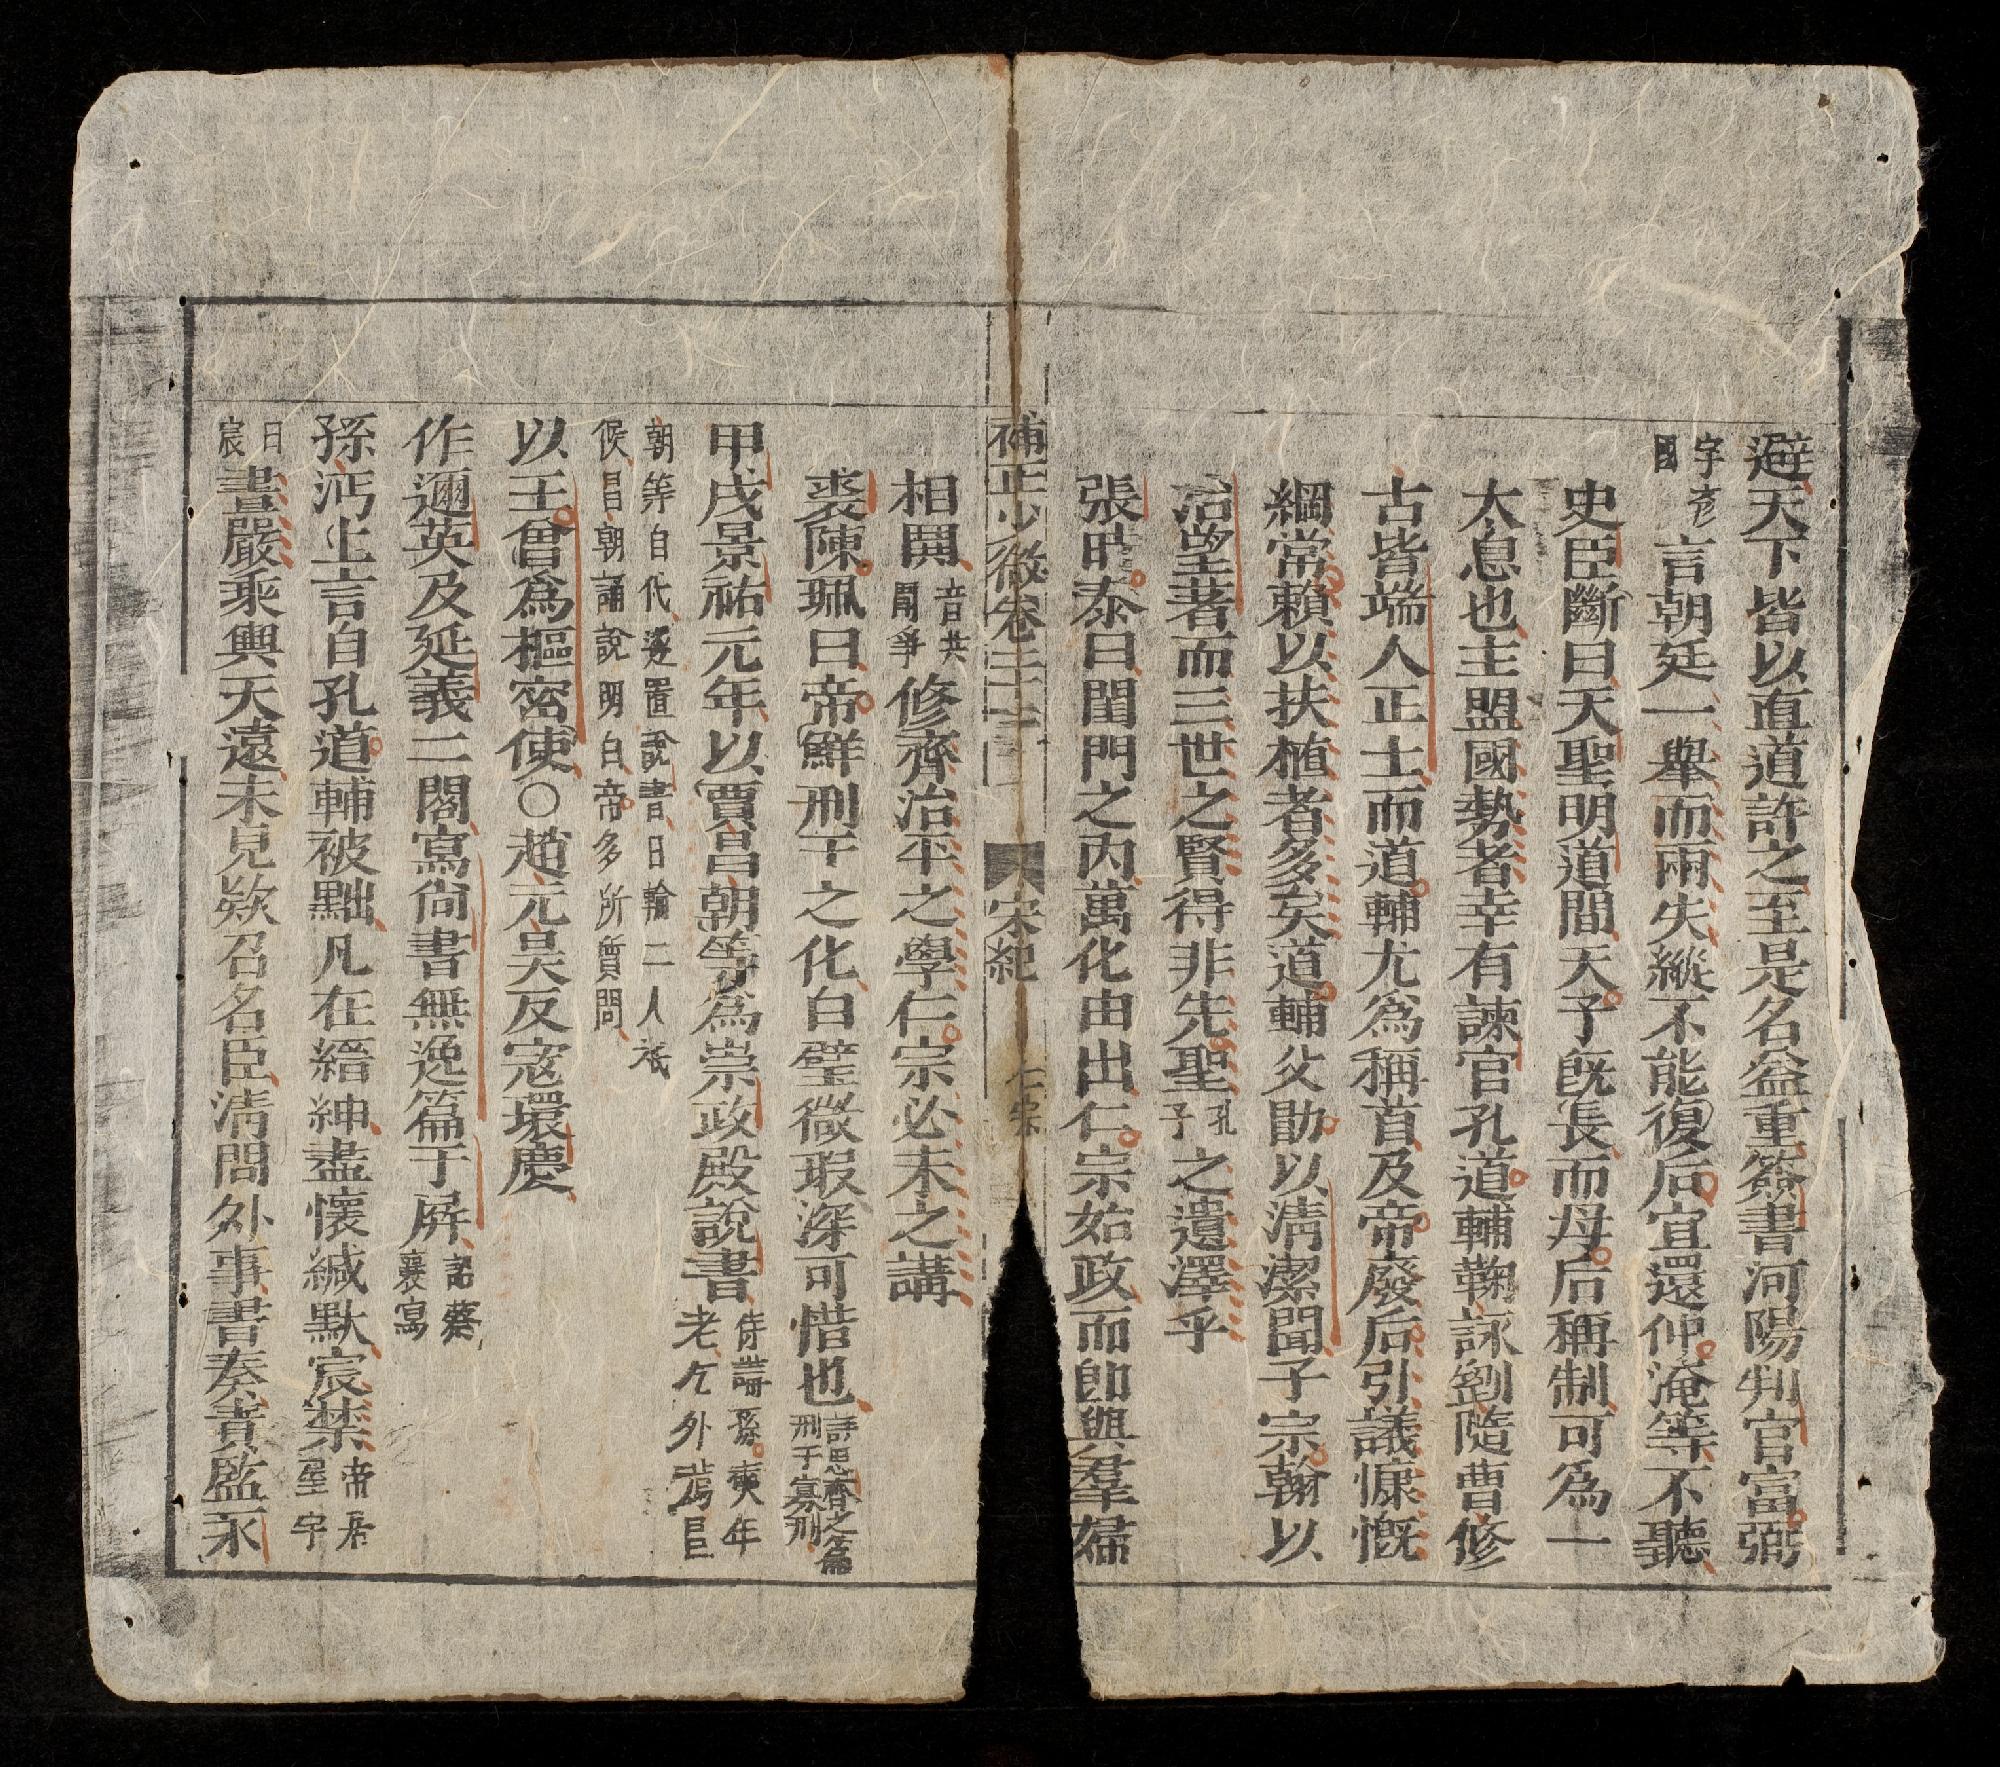 避天下皆以直道許之至是名益重簽書河陽判官富弼
字彥國言朝廷一舉而兩失縱不能復后宜還仲淹等不聽
史臣斷曰天聖明道間天子旣長而母后稱制可為一
太息也主盟國勢者幸有諫官孔道輔鞠詠劉隨曹修
古皆端人正士而道輔尤為稱首及帝廢后引議慷慨
綱常賴以扶植者多矣道輔父勖以清潔聞子宗翰以
治望著而三世之賢得非先聖孔子之遺澤乎
張時泰曰閨門之內萬化由出仁宗始政而卽與羣婦
補正少微卷三 宋紀 仁宗
相鬨音共鬪爭修齊治平之學仁宗必未之講
裘陳珮曰帝鮮刑于之化白璧微瑕深可惜也詩思齊之篇刑于寡刑
甲戌景祐元年以賈昌朝等為崇政殿說書侍講孫奭年老乞外薦巨
朝等自代遂置說書日輪二人祗
候昌朝誦說明白帝多所質問
以王曾為樞密使○趙元昊反寇環慶
作邇英及延義二閣寫尙書無逸篇于屏詔蔡襄寫
孫沔上言自孔道輔被黜凡在縉紳盡懷緘默宸禁帝居屋宇
曰宸晝嚴乘輿天遠未見欵召名臣清問外事書奏責監永